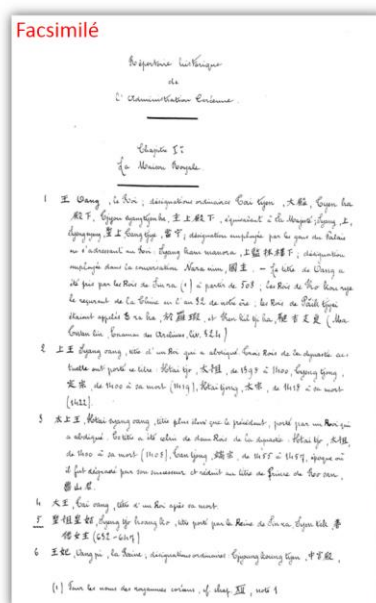 Facsimilé
Répertoire historique
de
l'Administration Coréenne
Chapitre I:
La Maison Royale.
1 王 Oang, le Roi; désignations ordinaires Tai tyen, 大殿, Tyen ha
殿下, 主上殿下, équivalent à Sa Majesté; Syang, 上,
皇上 當宁; désignation employée par les gens du Palais
en s'adressant au Roi: Syang kam manora, 上監抹樓下; désignation
employée dans la conversation Nara nim, 國主. - Le titre de Oang a
été pris par les Rois de Sin ra (1) à partir de 503; les Rois de Ko kou rye
le reçurent de la Chine en l'an 32 de notre ère; les Rois de Paik tjyei
étaient appelés E ra ha, et Ken kil tji ha, (Ma
Toan lin, liv. 324)
2 上王 Syang oang, titre d'un Roi qui a abdiqué. Trois Rois de la dynastie ac-
tuelle ont porté ce titre: Htai tjo, 太祖, de 1398 à 1400, Tyeng tjong,
定宗, de 1400 à sa mort (1419), Htai tjong, 太宗, de 1418 à sa mort
(1422).
3 太上王, Htai syang oang, titre plus élevé que le précédent, porté par un Roi qui
a abdiqué. Ce titre a été celui de deux Rois de la dynastie: Htai tjo, 太祖,
de 1400 à sa mort (1408), Tan tjong, 端宗, de 1455 à 1457, époque où
il fut dégradé par son successeur et réduit au titre de prince de No san,
魯山君.
4 大王, Tai oang, titre d'un Roi après sa mort.
5 聖祖皇姑, Syeng tjo hoang ko, titre porté par la Reine de Sin ra, Syen tek, 善
德女主 (632-647)
6 王妃, Oang pi, la Reine; désignations ordinaires: 中宮殿,
(1) Pour les noms des royaumes coréens, cf. chap. XII, note 1